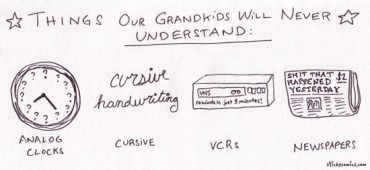 THINGS OUR GRANDKIDS WILL NEVER
UNDERSTAND:
? ? ? ? ? ? ? ? ? ? ? ?
cursive
handwriting
VHS
rewinds in just 5 minutes!
SHIT THAT $2
HAPPENED
YESTERDAY
ANALOG
CLOCKS
CURSIVE
VCRs
NEWSPAPERS
stickycomics.com